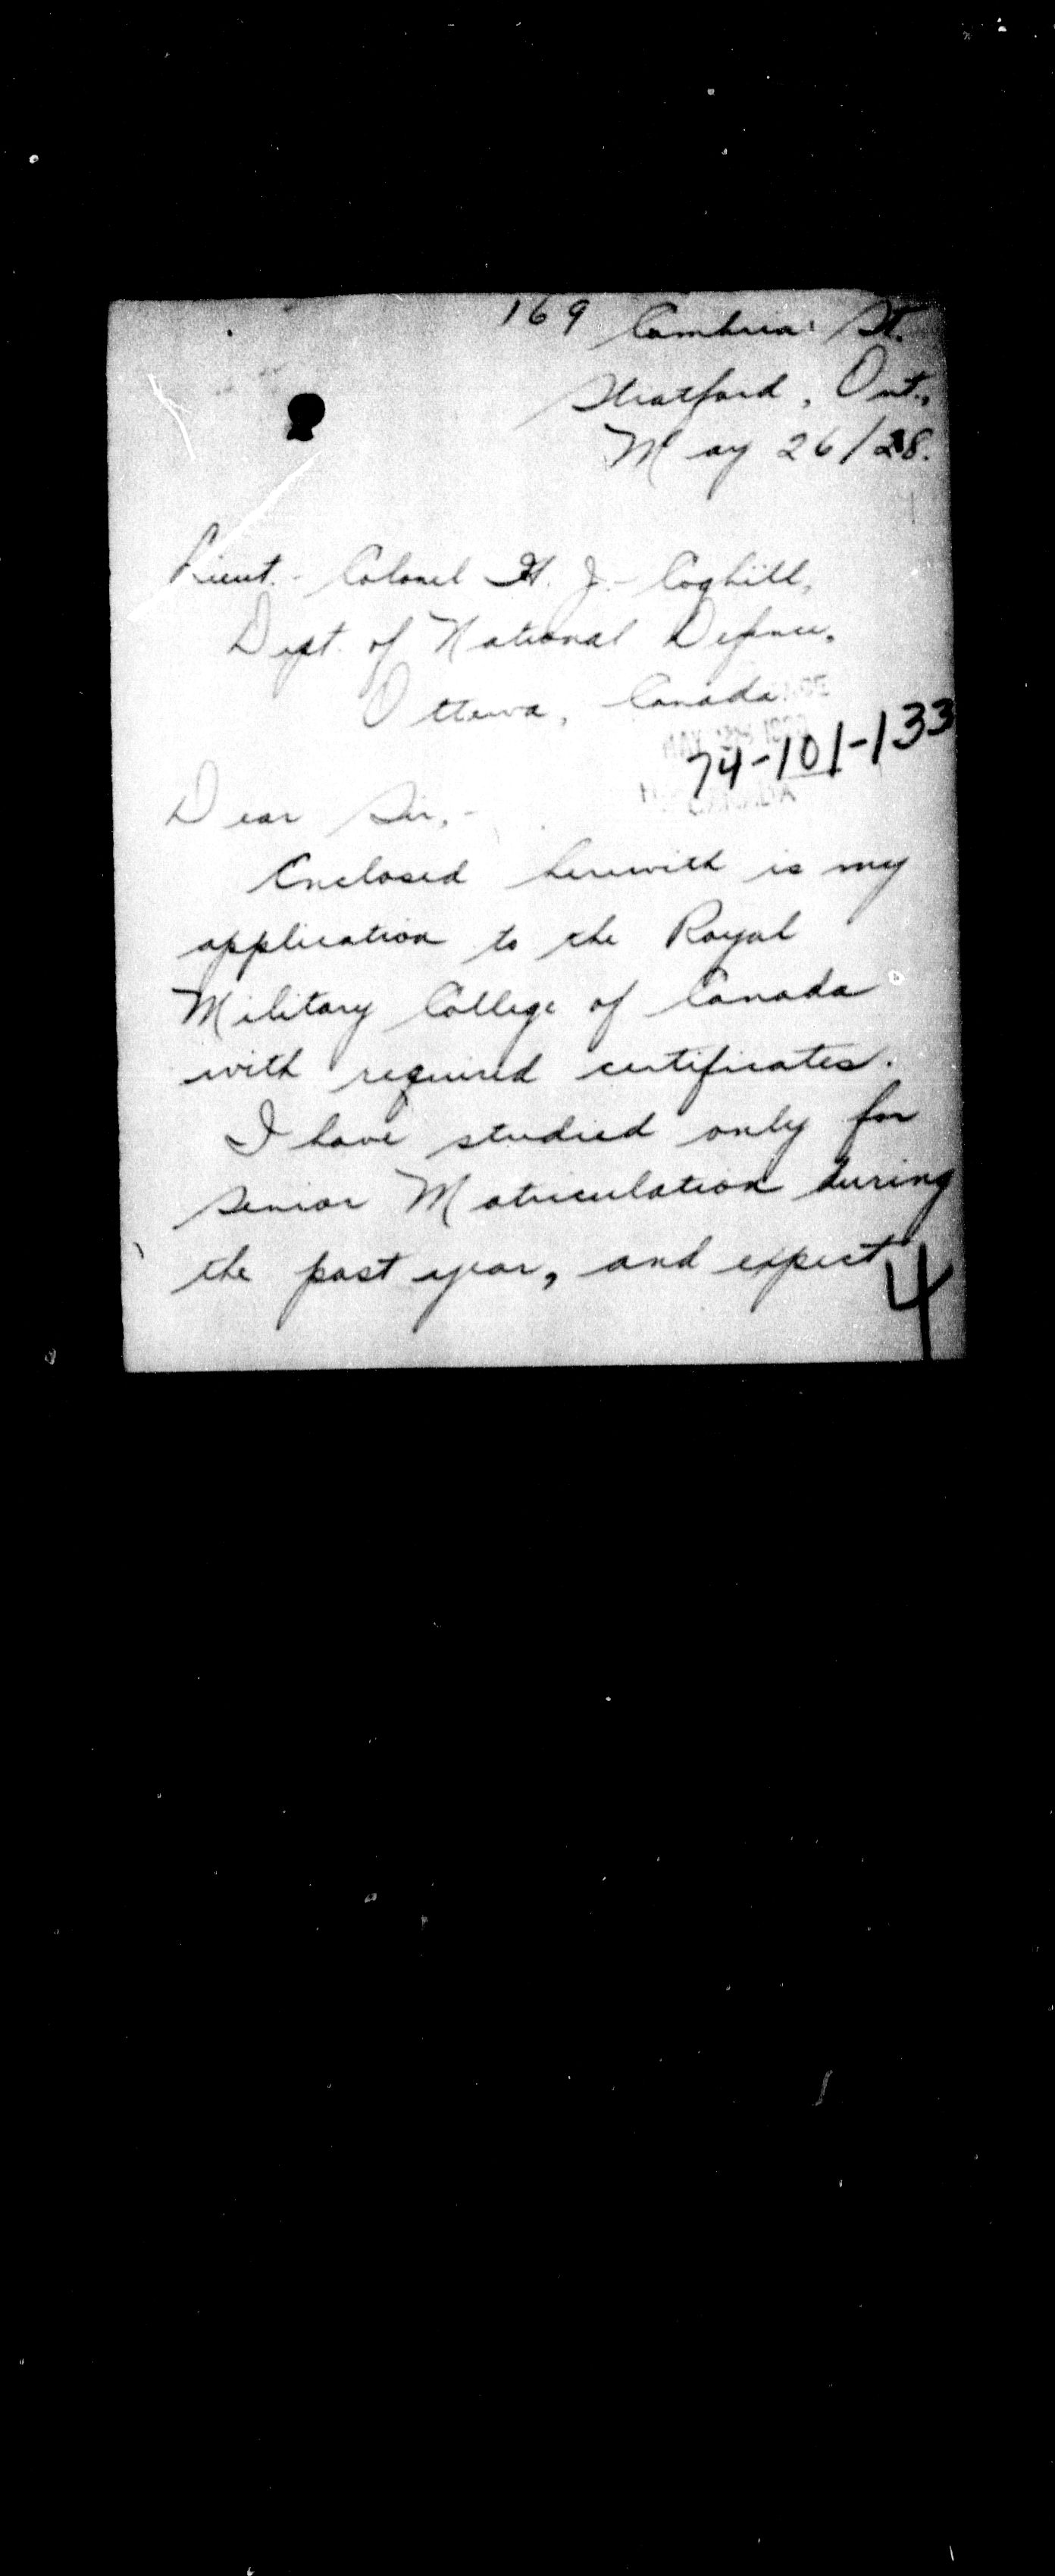 169 Cambria St.
Stratford, Ont.,
May 26/28.
Lieut.- Colonel H. J. Coghill,
Dept. of National Defence,
Ottawa, Canada.
MAY 1928
74-101-133
CANADA
Dear Sir,-
Enclosed herewith is my
application to the Royal
Military College of Canada
with required certificates.
I have studied only for
Senior Matriculation during
the past year, and expect
4